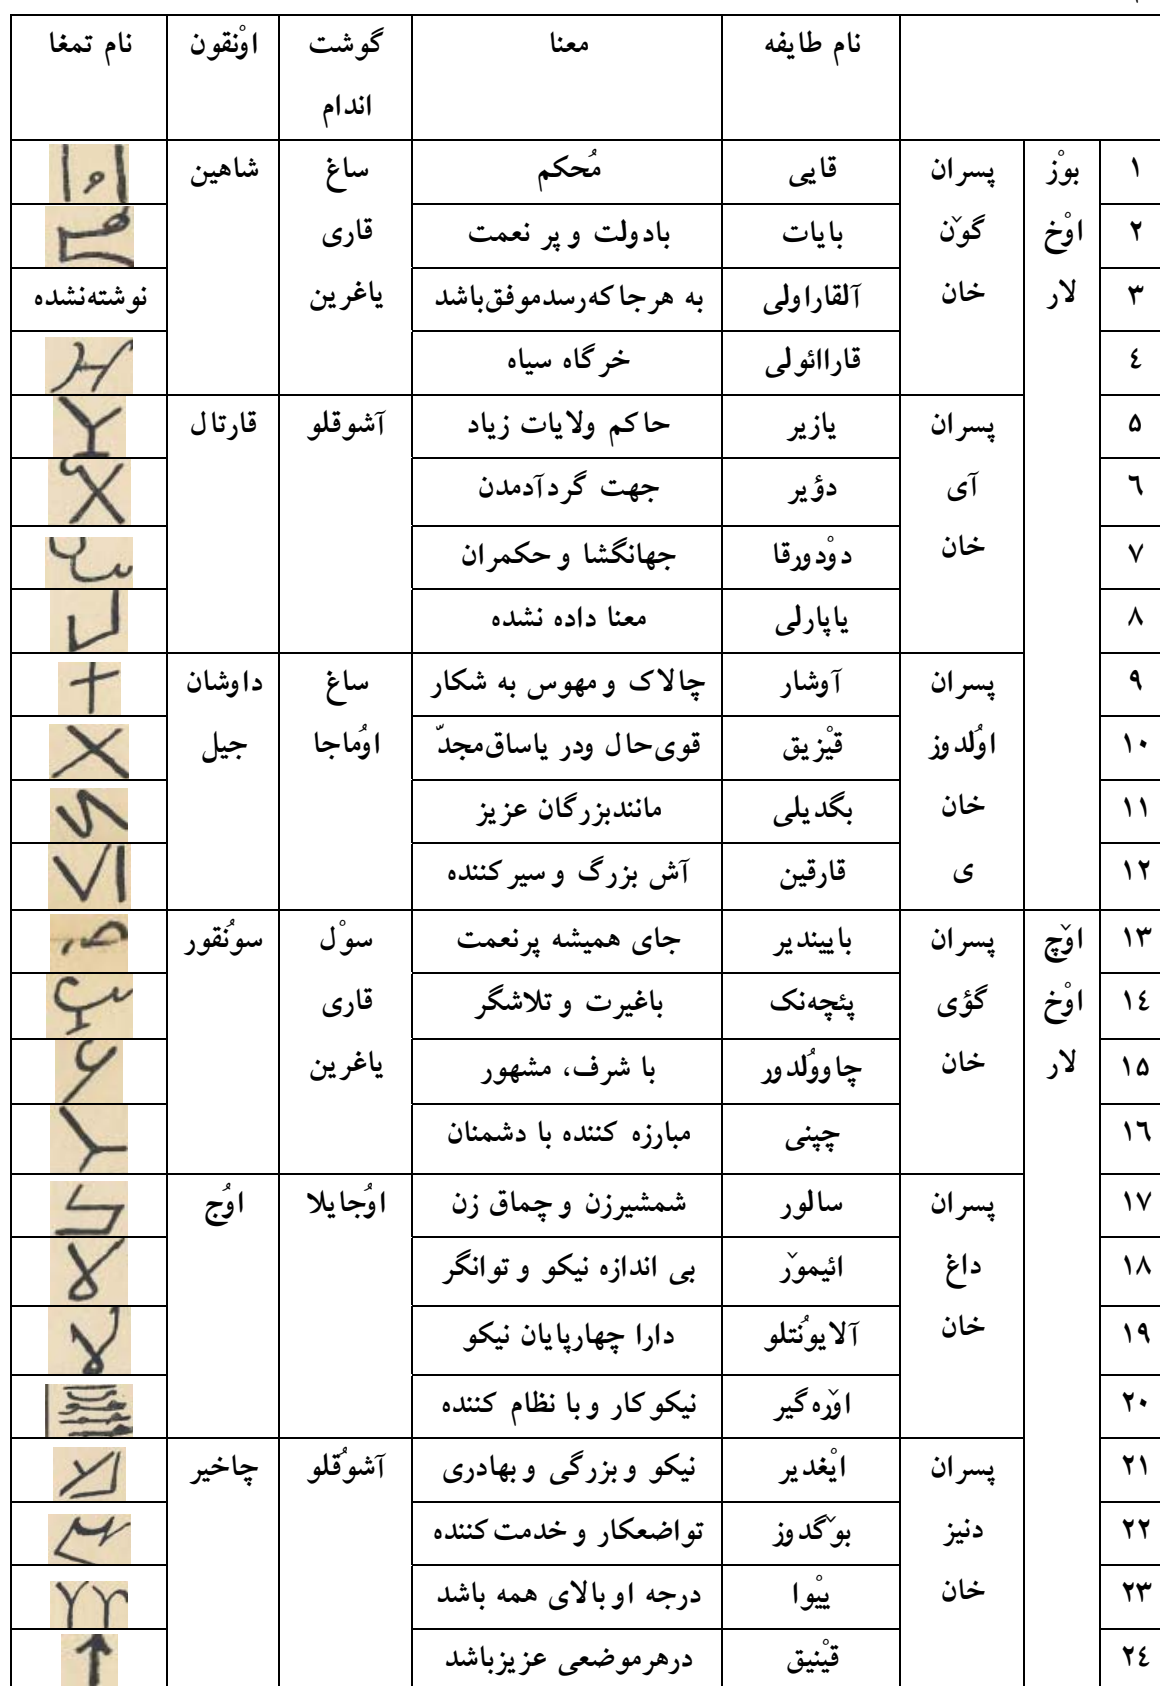 نام طایفه معنا گوشت اندام اوْنقون نام تمغا
۱ بوْز اوْخ لار پسران گوٚن خان قایی مُحکم ساغ قاری یاغرین شاهین
۲ بایات بادولت و پر نعمت
۳ آلقاراولی به هرجاکه‌رسدموفق‌باشد نوشته‌نشده
٤ قاراائولی خرگاه سیاه
۵ پسران آی خان یازیر حاکم ولایات زیاد آشوقلو قارتال
٦ دؤیر جهت گردآدمدن
۷ دوْدورقا جهانگشا و حکمران
۸ یاپارلی معنا داده نشده
۹ پسران اوُلدوز خان ی آوشار چالاک و مهوس به شکار ساغ اوُماجا داوشان جیل
۱۰ قیْزیق قوی‌حال ودر یاساق‌مجدّ
۱۱ بگدیلی مانندبزرگان عزیز
۱۲ قارقین آش بزرگ و سیرکننده
۱۳ اوٚچ اوْخ لار پسران گؤی خان باییندیر جای همیشه پرنعمت سوْل قاری یاغرین سوُنقور
۱٤ پئچه‌نک باغیرت و تلاشگر
۱۵ چاووُلدور با شرف، مشهور
۱٦ چپنی مبارزه کننده با دشمنان
۱۷ پسران داغ خان سالور شمشیرزن و چماق زن اوُجایلا اوُج
۱۸ ائیموٚر بی اندازه نیکو و توانگر
۱۹ آلایوُنتلو دارا چهارپایان نیکو
۲۰ اوٚره‌گیر نیکوکار وبا نظام کننده
۲۱ پسران دنیز خان ایْغدیر نیکو وبزرگی وبهادری آشوُقلو چاخیر
۲۲ بوٚگدوز تواضعکار و خدمت‌کننده
۲۳ ییْوا درجه اوبالای همه باشد
۲٤ قیْنیق درهرموضعی عزیزباشد